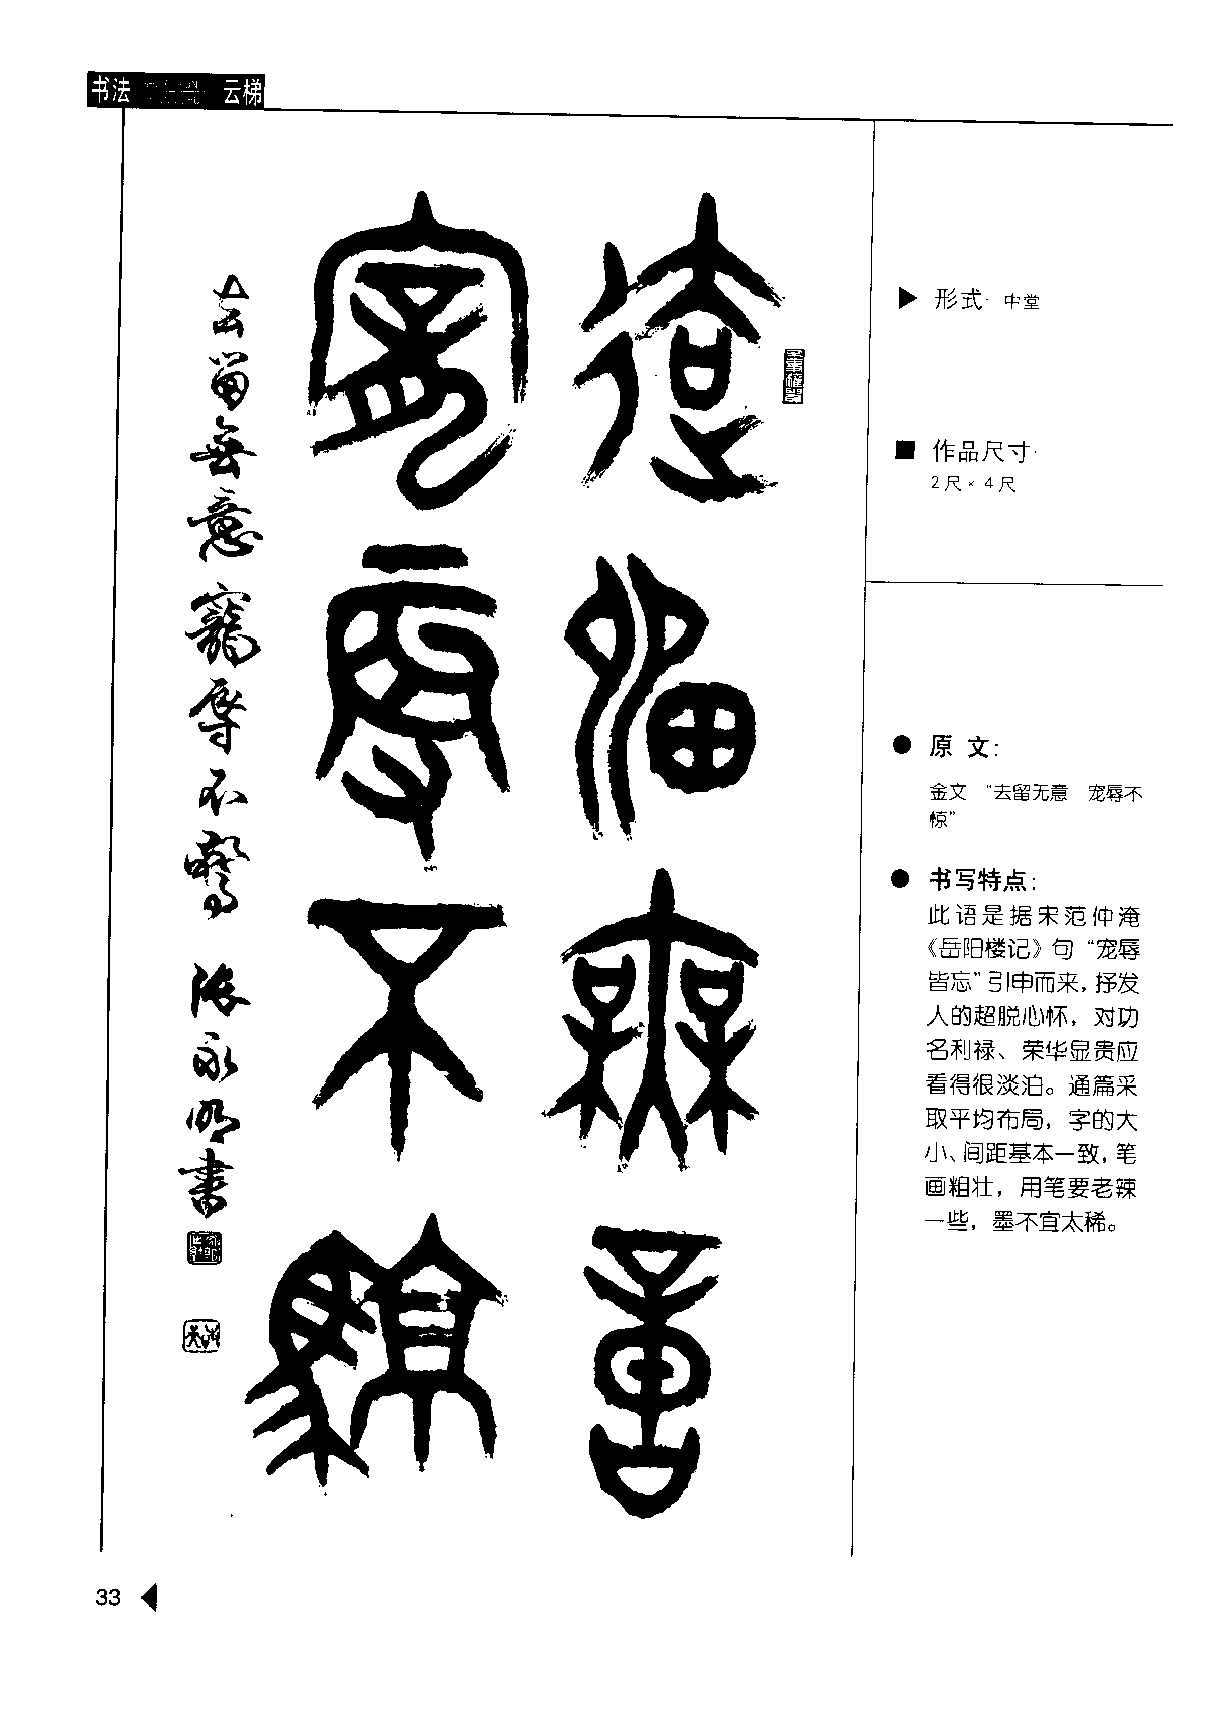 书法 云梯
去留無意
寵辱不驚
去留無意寵辱不驚 張永明書
形式 中堂
作品尺寸
2尺×4尺
原 文:
金文 “去留无意 宠辱不
惊”
书写特点:
此语是据宋范仲淹
《岳阳楼记》句“宠辱
皆忘”引申而来,抒发
人的超脱心怀,对功
名利禄、荣华显贵应
看得很淡泊。通篇采
取平均布局,字的大
小、间距基本一致,笔
画粗壮,用笔要老辣
一些,墨不宜太稀。
33